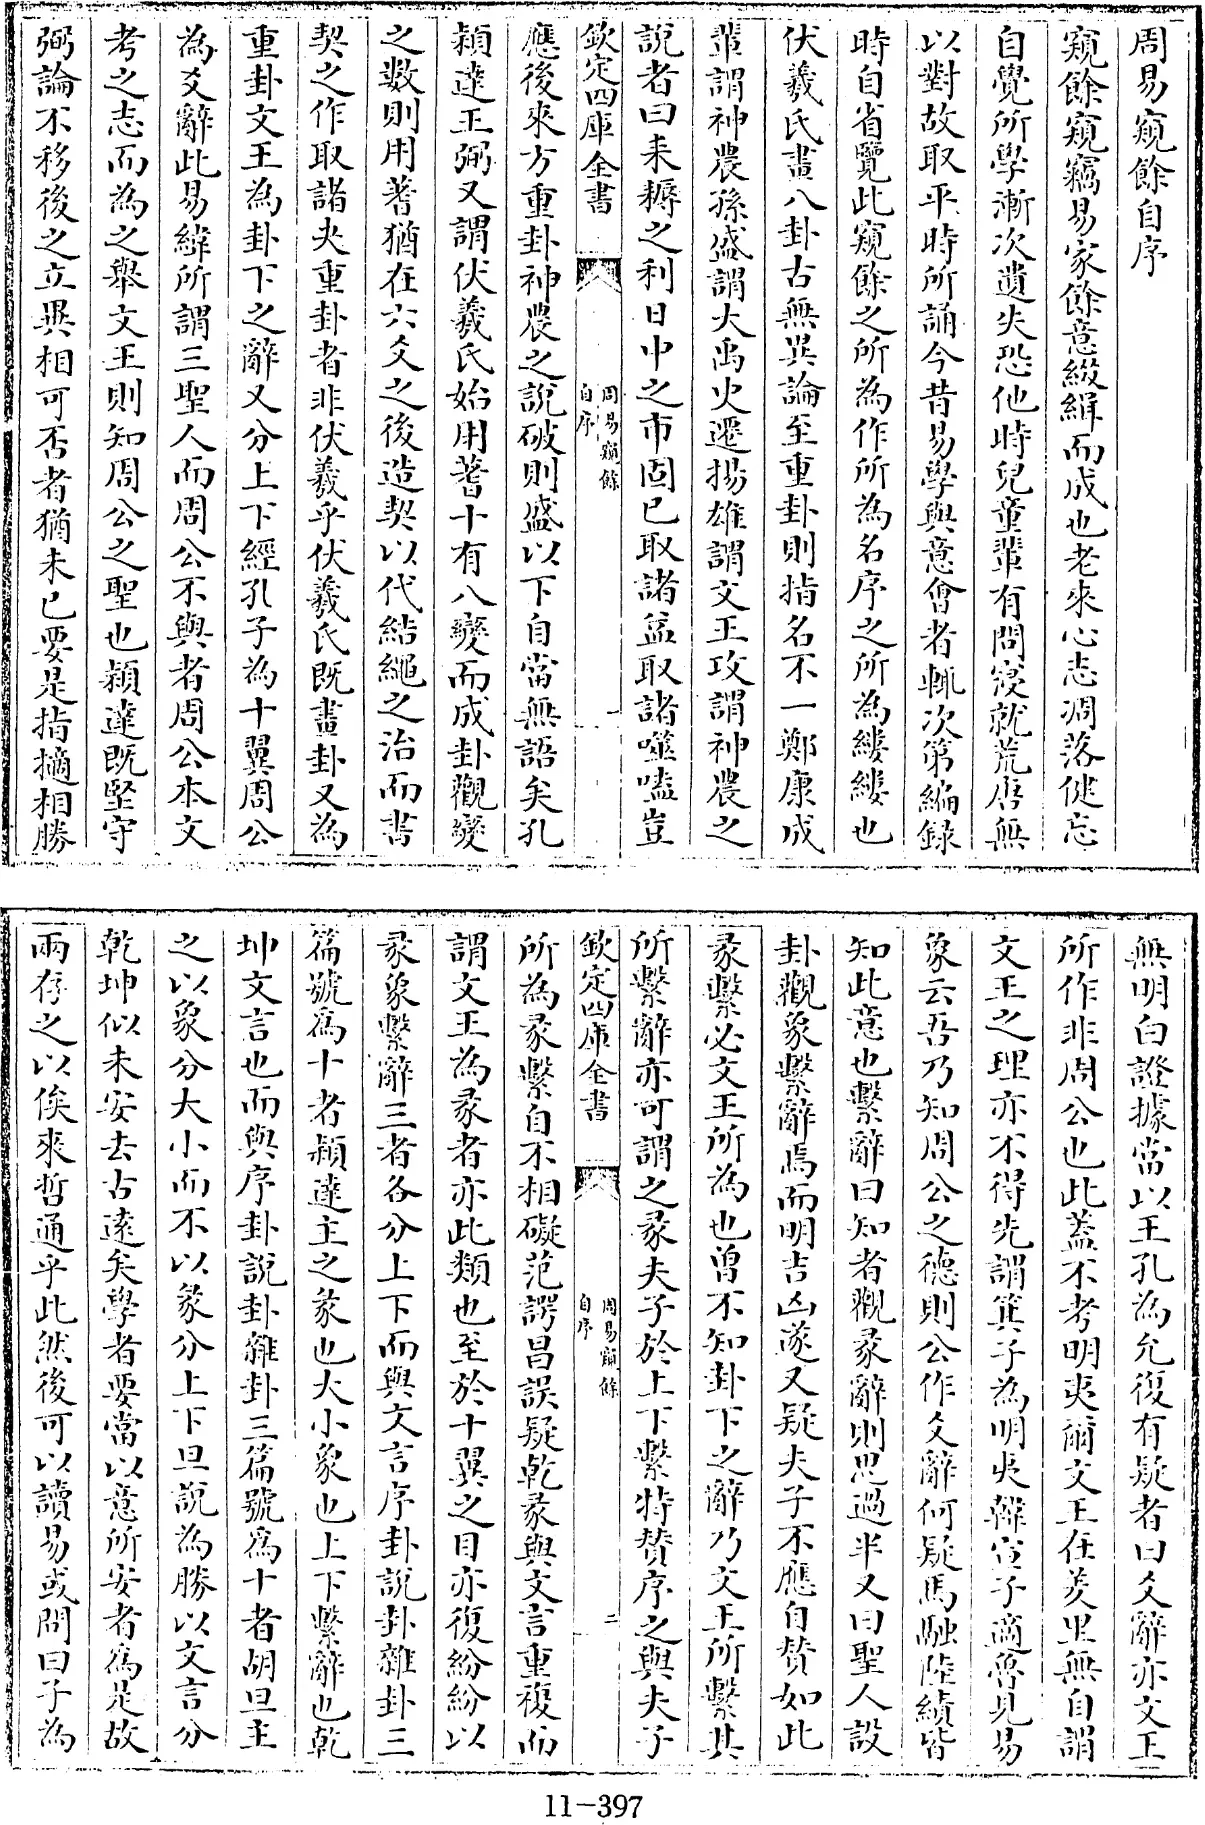 周易窺餘自序
窺餘窺竊易家餘意綴緝而成也老來心志凋落健忘
自覺所學漸次遺失恐他時兒童輩有問寖就荒唐無
以對故取平時所誦今昔易學與意會者輒次第編錄
時自省覽此窺餘之所為作所為名序之所為縷縷也
伏羲氏畫八卦古無異論至重卦則指名不一鄭康成
輩謂神農孫盛謂大禹史遷揚雄謂文王攻謂神農之
說者曰耒耨之利日中之市固已取諸益取諸噬嗑豈
欽定四庫全書
周易窺餘
自序
一
應後來方重卦神農之說破則盛以下自當無語矣孔
穎達王弼又謂伏羲氏始用蓍十有八變而成卦觀變
之數則用蓍猶在六爻之後造契以代結繩之治而書
契之作取諸夬重卦者非伏羲乎伏羲氏既畫卦又為
重卦文王為卦下之辭又分上下經孔子為十翼周公
為爻辭此易緯所謂三聖人而周公不與者周公本文
考之志而為之舉文王則知周公之聖也穎達既堅守
弼論不移後之立異相可否者猶未已要是指擿相勝
無明白證據當以王孔為允復有疑者曰爻辭亦文王
所作非周公也此蓋不考明夷爾文王在羑里無自謂
文王之理亦不得先謂箕子為明夷韓宣子適魯見易
象云吾乃知周公之德則公作爻辭何疑馬融陸績皆
知此意也繫辭曰知者觀彖辭則思過半又曰聖人設
卦觀象繫辭焉而明吉凶遂又疑夫子不應自贊如此
彖繫必文王所為也曾不知卦下之辭乃文王所繫其
所繫辭亦可謂之彖夫子於上下繫特贊序之與夫子
欽定四庫全書
周易窺餘
自序
二
所為彖繫自不相礙范諤昌誤疑乾彖與文言重複而
謂文王為彖者亦此類也至於十翼之目亦復紛紛以
彖象繫辭三者各分上下而與文言序卦說卦雜卦三
篇號為十者穎達主之彖也大小象也上下繫辭也乾
坤文言也而與序卦說卦雜卦三篇號為十者胡旦主
之以象分大小而不以彖分上下旦說為勝以文言分
乾坤似未安去古遠矣學者要當以意所安者為是故
兩存之以俟來哲通乎此然後可以讀易或問曰子為
11-397